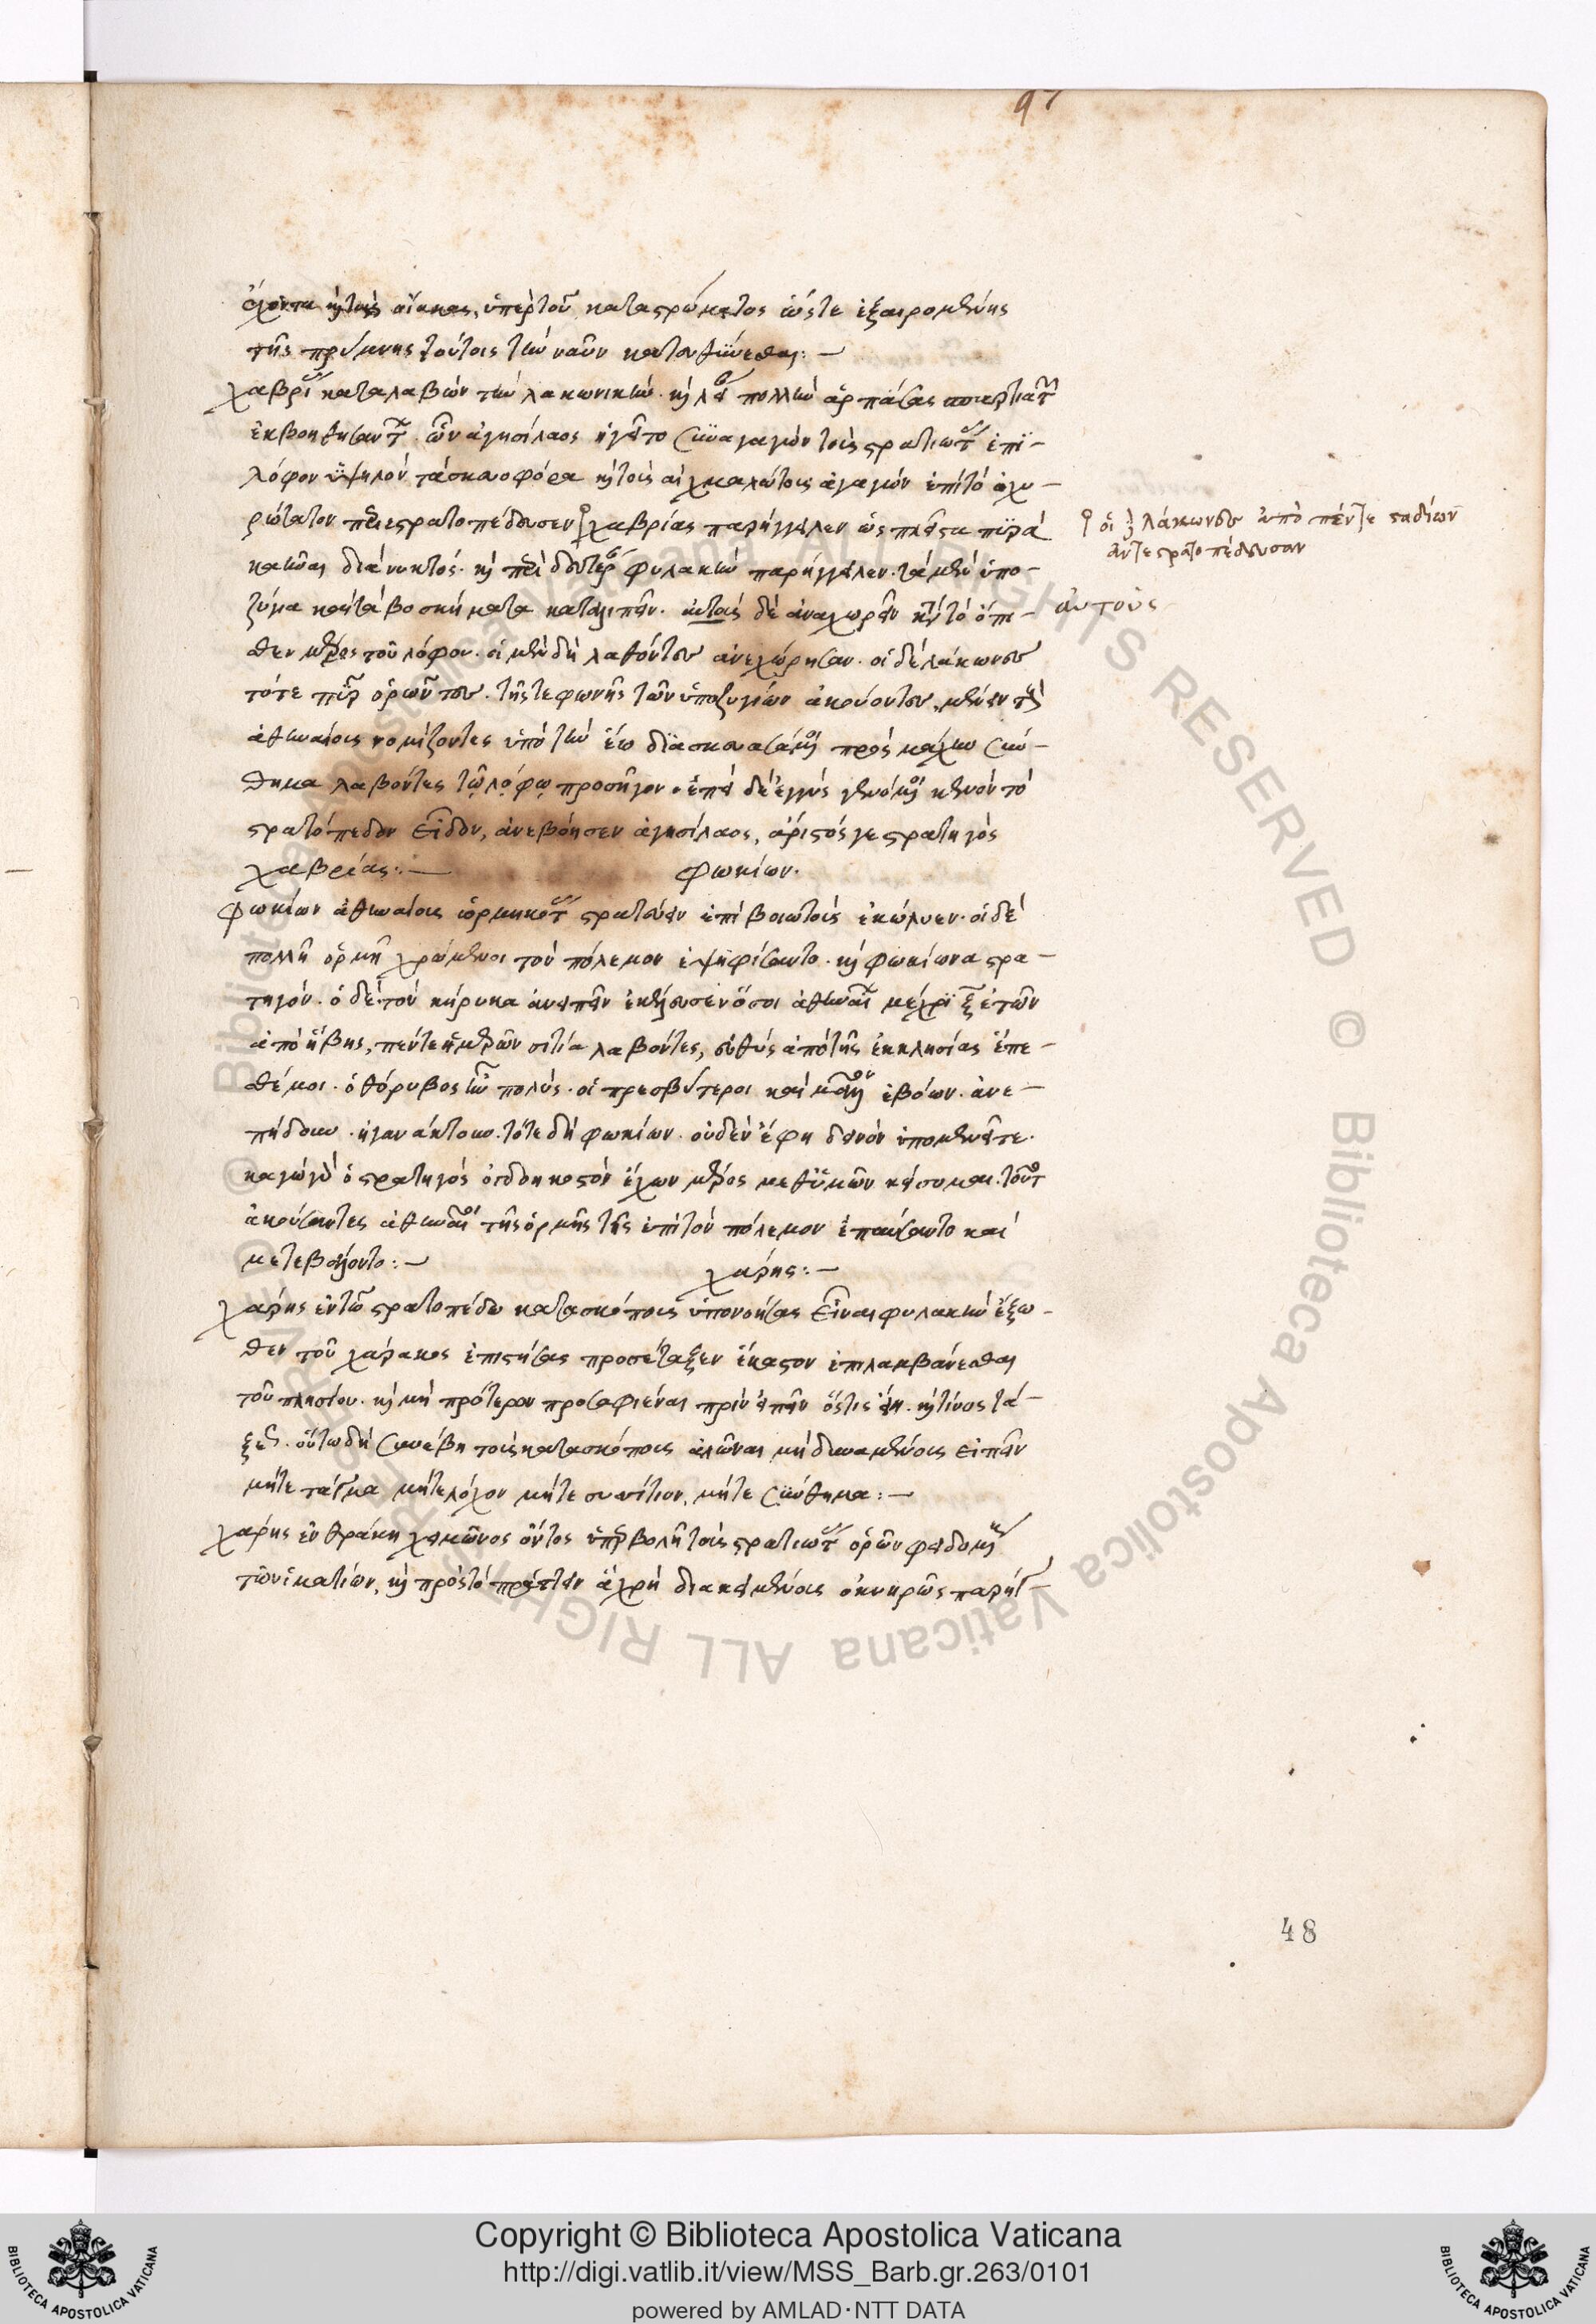 97
ἔχοντα καὶ τοὺς οἴακας, ὑπὲρ τοῦ καταστρώματος ὥστε ἐξαιρομένης
τῆς πρύμνης τούτοις τὴν ναῦν κατευθύνεσθαι:—
χαβρίας καταλαβὼν τὴν λακωνικὴν. καὶ λείαν πολλὴν ἁρπάσας
ἐκβοηθήσαντος. ὧν ἀγησίλαος ἡγεῖτο συναγαγὼν τοὺς στρατιώτας ἐπὶ
λόφον ὑψηλὸν τὰ σκευοφόρα καὶ τοὺς αἰχμαλώτους ἀγαγὼν ἐπὶ τὸ ὀχυ-
ρώτατον περιεστρατοπέδευσεν χαβρίας παρήγγειλεν ὡς πλεῖστα πυρὰ
καῦσαι διὰ νυκτός. καὶ περὶ δευτέραν φυλακὴν παρήγγειλεν. τὰ μὲν ὑπο-
ζύγια καὶ τὰ βοσκήματα καταλιπεῖν. αὐτοὺς δὲ ἀναχωρεῖν κατὰ τὸ ὄπι-
σθεν μέρος τοῦ λόφου. οἱ μὲν δὴ λαθόντες ἀνεχώρησαν. οἱ δὲ λάκωνες
τότε πῦρ ὁρῶντες. τῆς τε φωνῆς τῶν ὑποζυγίων ἀκούοντες, μένειν τοὺς
ἀθηναίους νομίζοντες ὑπὸ τὴν ἕω διασκευασάμενοι πρὸς μάχην σύν-
θημα λαβόντες τῷ λόφῳ προσῆγον. ἐπεὶ δὲ ἐγγὺς γενόμενοι κενὸν τὸ
στρατόπεδον εἶδον, ἀνεβόησεν ἀγησίλαος, ἄριστός γε στρατηγὸς
χαβρίας:—
φωκίων.
φωκίων ἀθηναίους ὡρμηκότας στρατεύειν ἐπὶ βοιωτοὺς ἐκώλυεν. οἱ δὲ
πολλῇ ὁρμῇ χρώμενοι τὸν πόλεμον ἐψηφίσαντο. καὶ φωκίωνα στρα-
τηγόν. ὁ δὲ τὸν κήρυκα ἀνειπεῖν ἐκέλευσεν ὅσοι ἀθηναῖοι μέχρι ἑξ ἐτῶν
ἀπὸ ἥβης, πέντε ἡμερῶν σιτία λαβόντες, εὐθὺς ἀπὸ τῆς ἐκκλησίας ἕπε-
σθέ μοι. ὁ θόρυβος ἦν πολύς. οἱ πρεσβύτεροι καὶ μᾶλλον ἐβόων. ἀνε-
πήδων. ἠγανάκτουν. τότε δὴ φωκίων. οὐδὲν ἔφη δεινὸν ὑπομενεῖτε.
κἀγὼ γὰρ ὁ στρατηγὸς ὀγδοηκοστὸν ἔχων μέρος μεθ' ὑμῶν κείσομαι. τοῦτο
ἀκούσαντες ἀθηναῖοι τῆς ὁρμῆς τῆς ἐπὶ τὸν πόλεμον ἐπαύσαντο καὶ
μετεβάλοντο:—
χάρης:—
χάρης ἐν τῷ στρατοπέδῳ κατασκόπους ὑπονοήσας εἶναι φυλακὴν ἔξω-
θεν τοῦ χάρακος ἐπιστήσας προσέταξεν ἕκαστον ἐπιλαμβάνεσθαι
τοῦ πλησίου. καὶ μὴ πρότερον προσαφιέναι πρὶν εἰπεῖν ὅστις εἴη. καὶ τίνος τά-
ξεως. οὕτω δὴ συνέβη τοὺς κατασκόπους ἁλῶναι μὴ δυναμένους εἰπεῖν
μήτε τάγμα μήτε λόχον μήτε συσσίτιον, μήτε σύνθημα:—
χάρης ἐν θράκῃ χειμῶνος ὄντος ὑπερβολῇ τοὺς στρατιώτας ὁρῶν φειδομένους
τῶν ἱματίων, καὶ πρὸς τὸ πράττειν ἃ χρὴ διακειμένους ὀκνηρῶς παρήγ-
οἱ δὲ λάκωνες ἀπὸ πέντε σταδίων
ἀντεστρατοπέδευσαν
αὐτοὺς
48
© Biblioteca Apostolica Vaticana ALL RIGHTS RESERVED
Copyright © Biblioteca Apostolica Vaticana
http://digi.vatlib.it/view/MSS_Barb.gr.263/0101
powered by AMLAD·NTT DATA
BIBLIOTECA APOSTOLICA VATICANA
BIBLIOTECA APOSTOLICA VATICANA